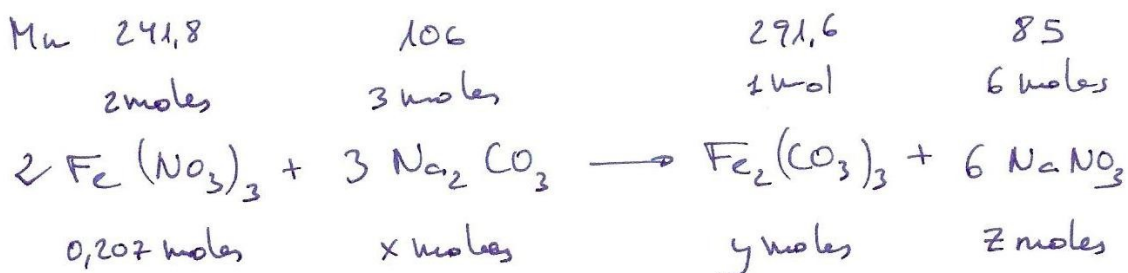 Mm 241,8 106 291,6 85
2 moles 3 moles 1 mol 6 moles
2 Fe (NO₃)₃ + 3 Na₂ CO₃ → Fe₂(CO₃)₃ + 6 NaNO₃
0,207 moles x moles y moles z moles